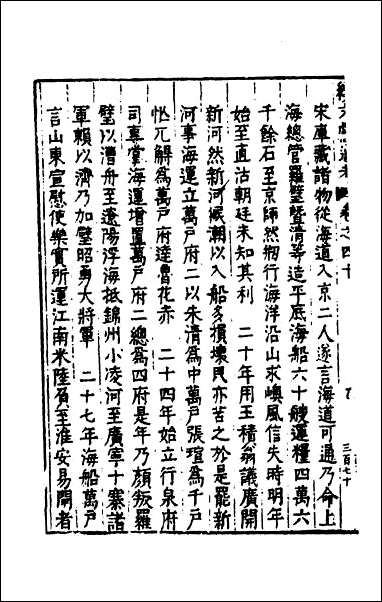 續文獻通考　卷之四十
三百七十
宋庫藏諸物從海道入京二人遂言海道可通乃命上
海總管羅璧暨清等造平底海船六十艘運糧四萬六
千餘石至京師然剏行海洋沿山求㠘風信失時明年
始至直沽朝廷未知其利　二十年用王積翁議廣開
新河然新河候潮以入船多損壞民亦苦之於是罷新
河事海運立萬戶府二以朱清為中萬戶張瑄為千戶
忙兀觧為萬戶府達魯花赤　二十四年始立行泉府
司專掌海運增置萬戶府二總為四府是年乃顏叛羅
璧以漕舟至遼陽浮海抵錦州小凌河至廣寧十寨諸
軍賴以濟乃加璧昭勇大將軍　二十七年海船萬戶
言山東宣慰使樂實所運江南米陸負至淮安易閘者